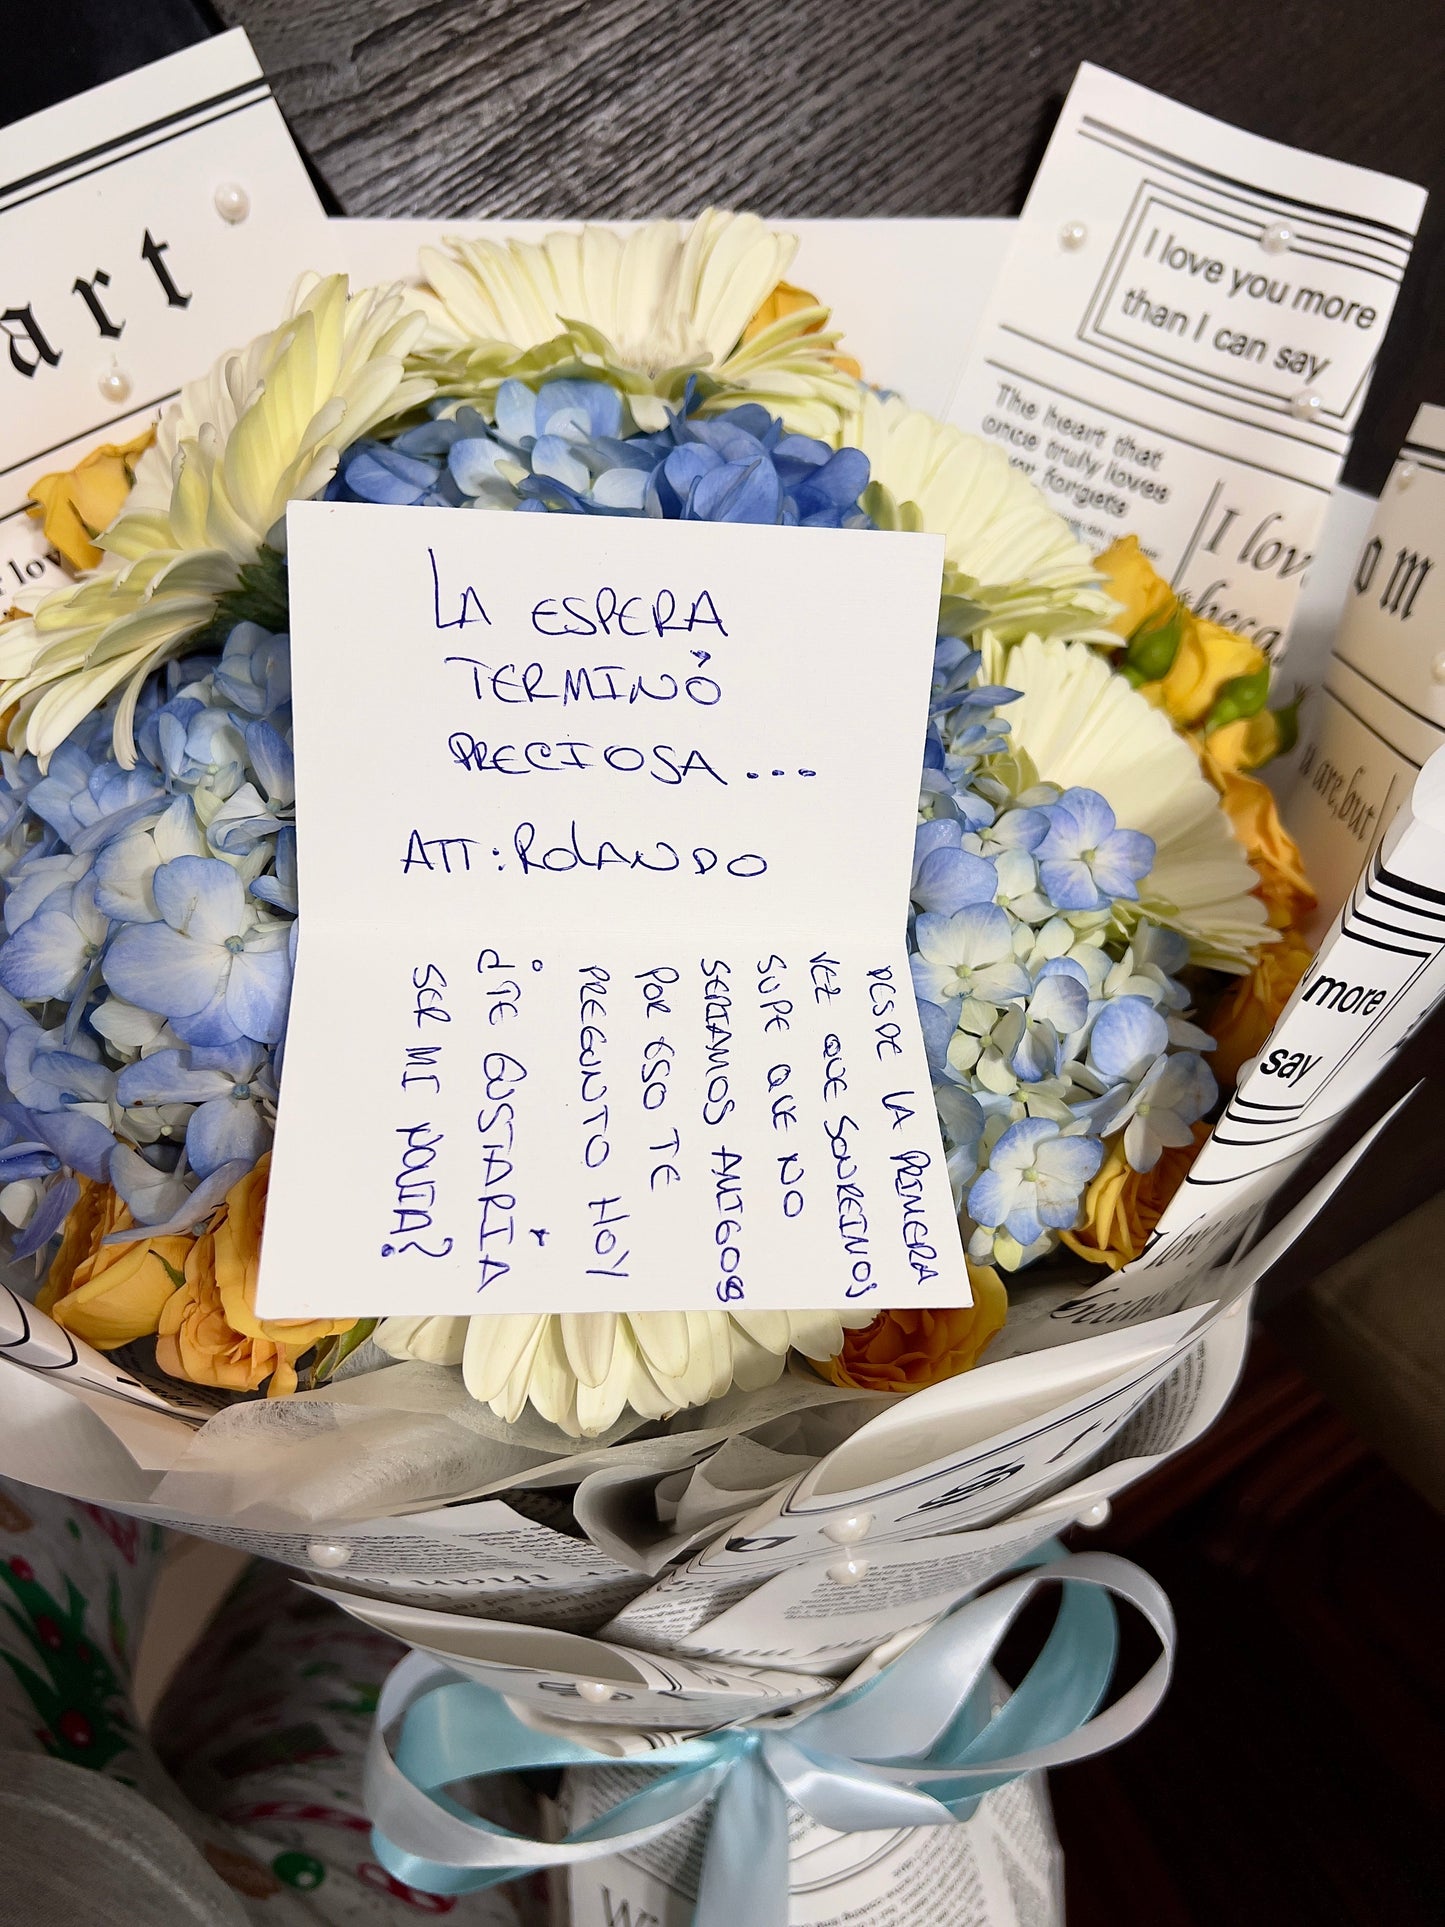 art
I love you more
than I can say
The heart that
once truly loves
forgets
I lov
beca
om
u are, but
r lov
LA ESPERA
TERMINÓ
PRECIOSA...
ATT: ROLANDO
DESDE LA PRIMERA
VEZ QUE SONREIMOS
SUPE QUE NO
SERIAMOS AMIGOS
POR ESO TE
PREGUNTO HOY
¿TE GUSTARÍA
SER MI NOVIA?
more
say
love
because
er than